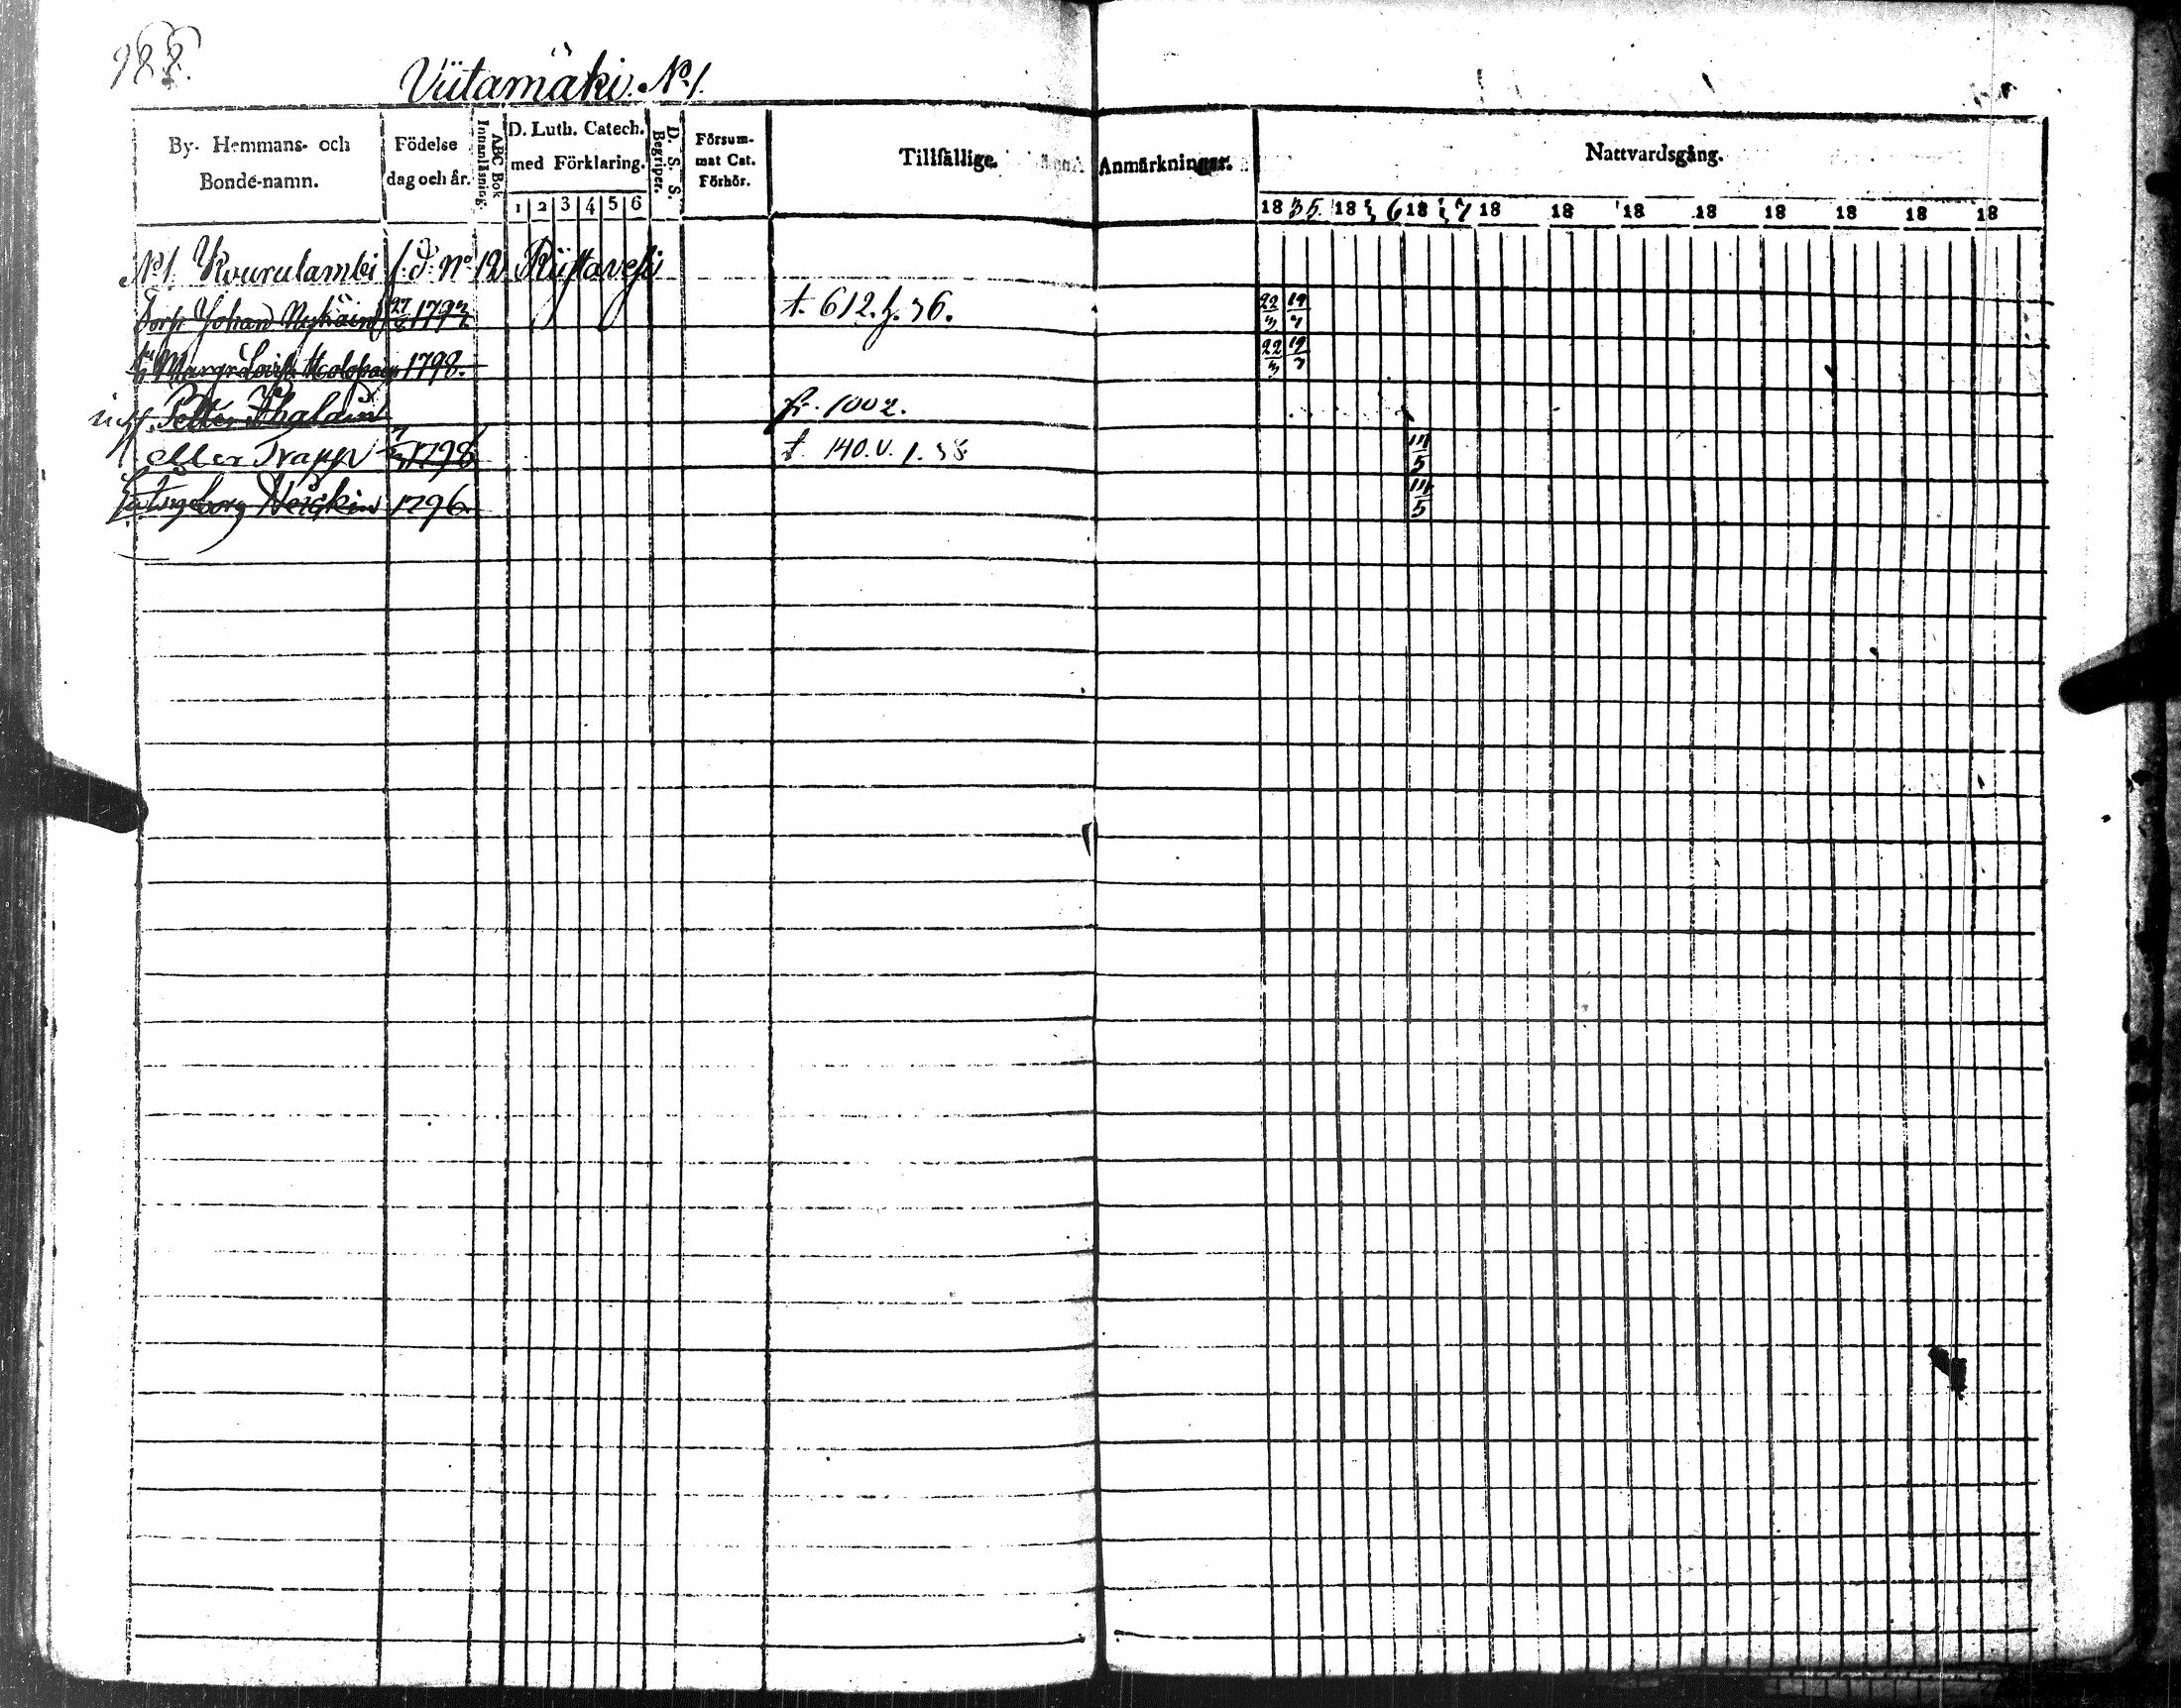 988.
Viitamäki. No 1.
By- Hemmans- och Bonde-namn.
Födelse dag och år.
ABC Bok Innanläsning.
D. Luth. Catech. med Förklaring.
1 2 3 4 5 6
D. S. S. Begriper.
Försum- mat Cat. Förhör.
Tillfällige Anmärkningar.
Nattvardsgång.
1835. 1836 1837 18 18 18 18 18 18 18 18
No 1. Kourulambi f. d. No 12 Riistavesi
Torp Johan Nykäin 27 1792 t. 612. f. 36. 22/3 19/7
h. Margr. Lovisa Holopain 1798. 22/3 19/7
Petter fr. 1002.
eller Trapp 1798 t. 140. v. f. 38 14/5
Ingeborg Heiskin 1796. 14/5